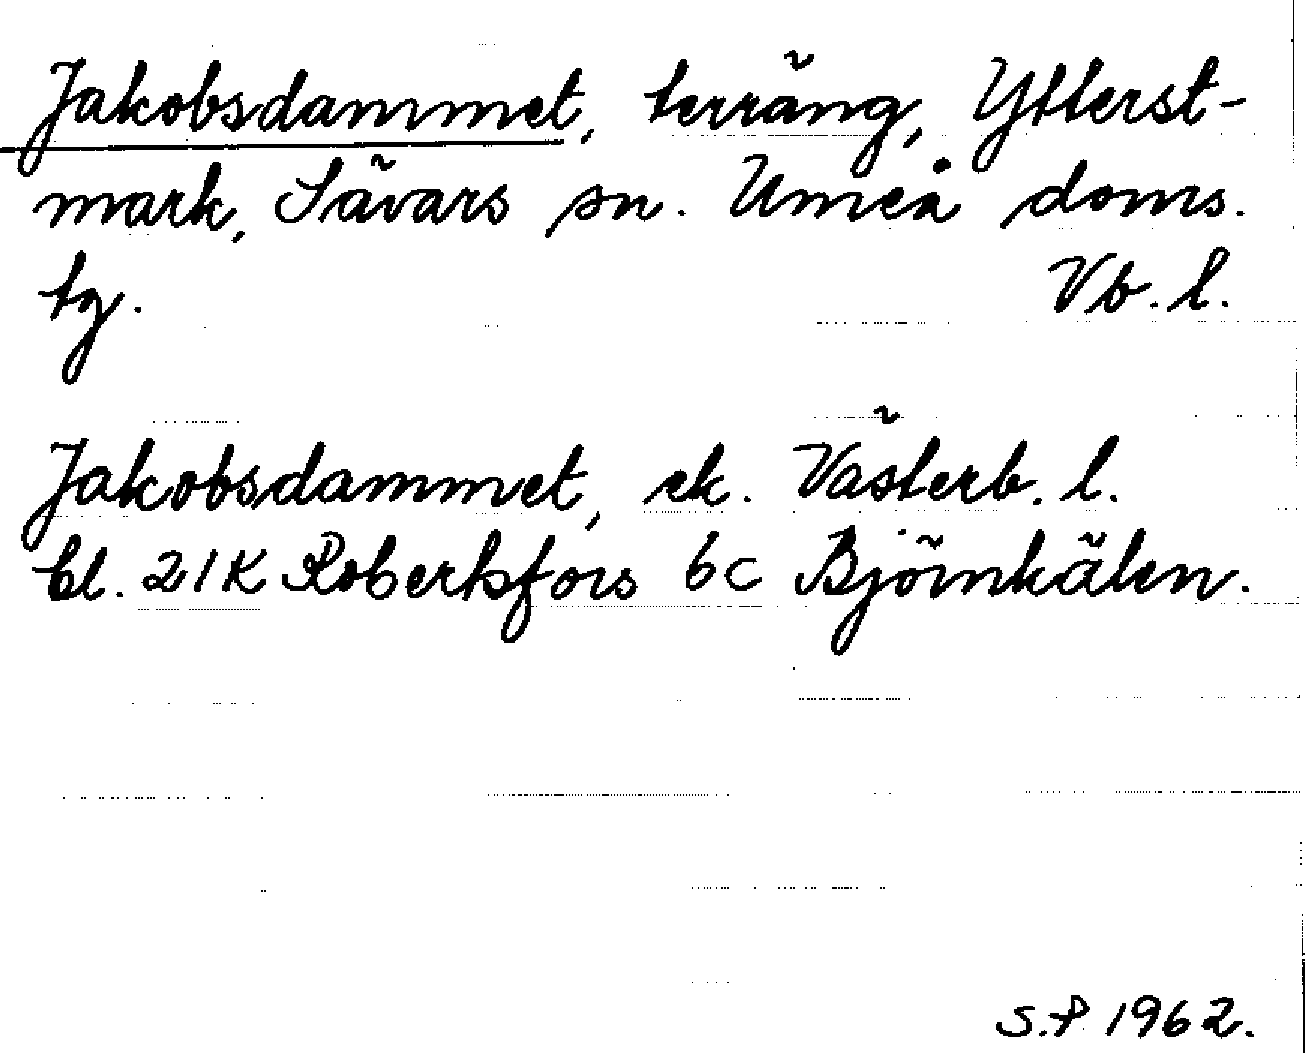 Jakobsdammet, terräng, Ytterst-
mark, Sävars sn. Umeå doms.
tg. Vb. l.
Jakobsdammet, ek. Västerb. l.
bl. 21K Robertsfors 6c Björnkälen.
S.P 1962.